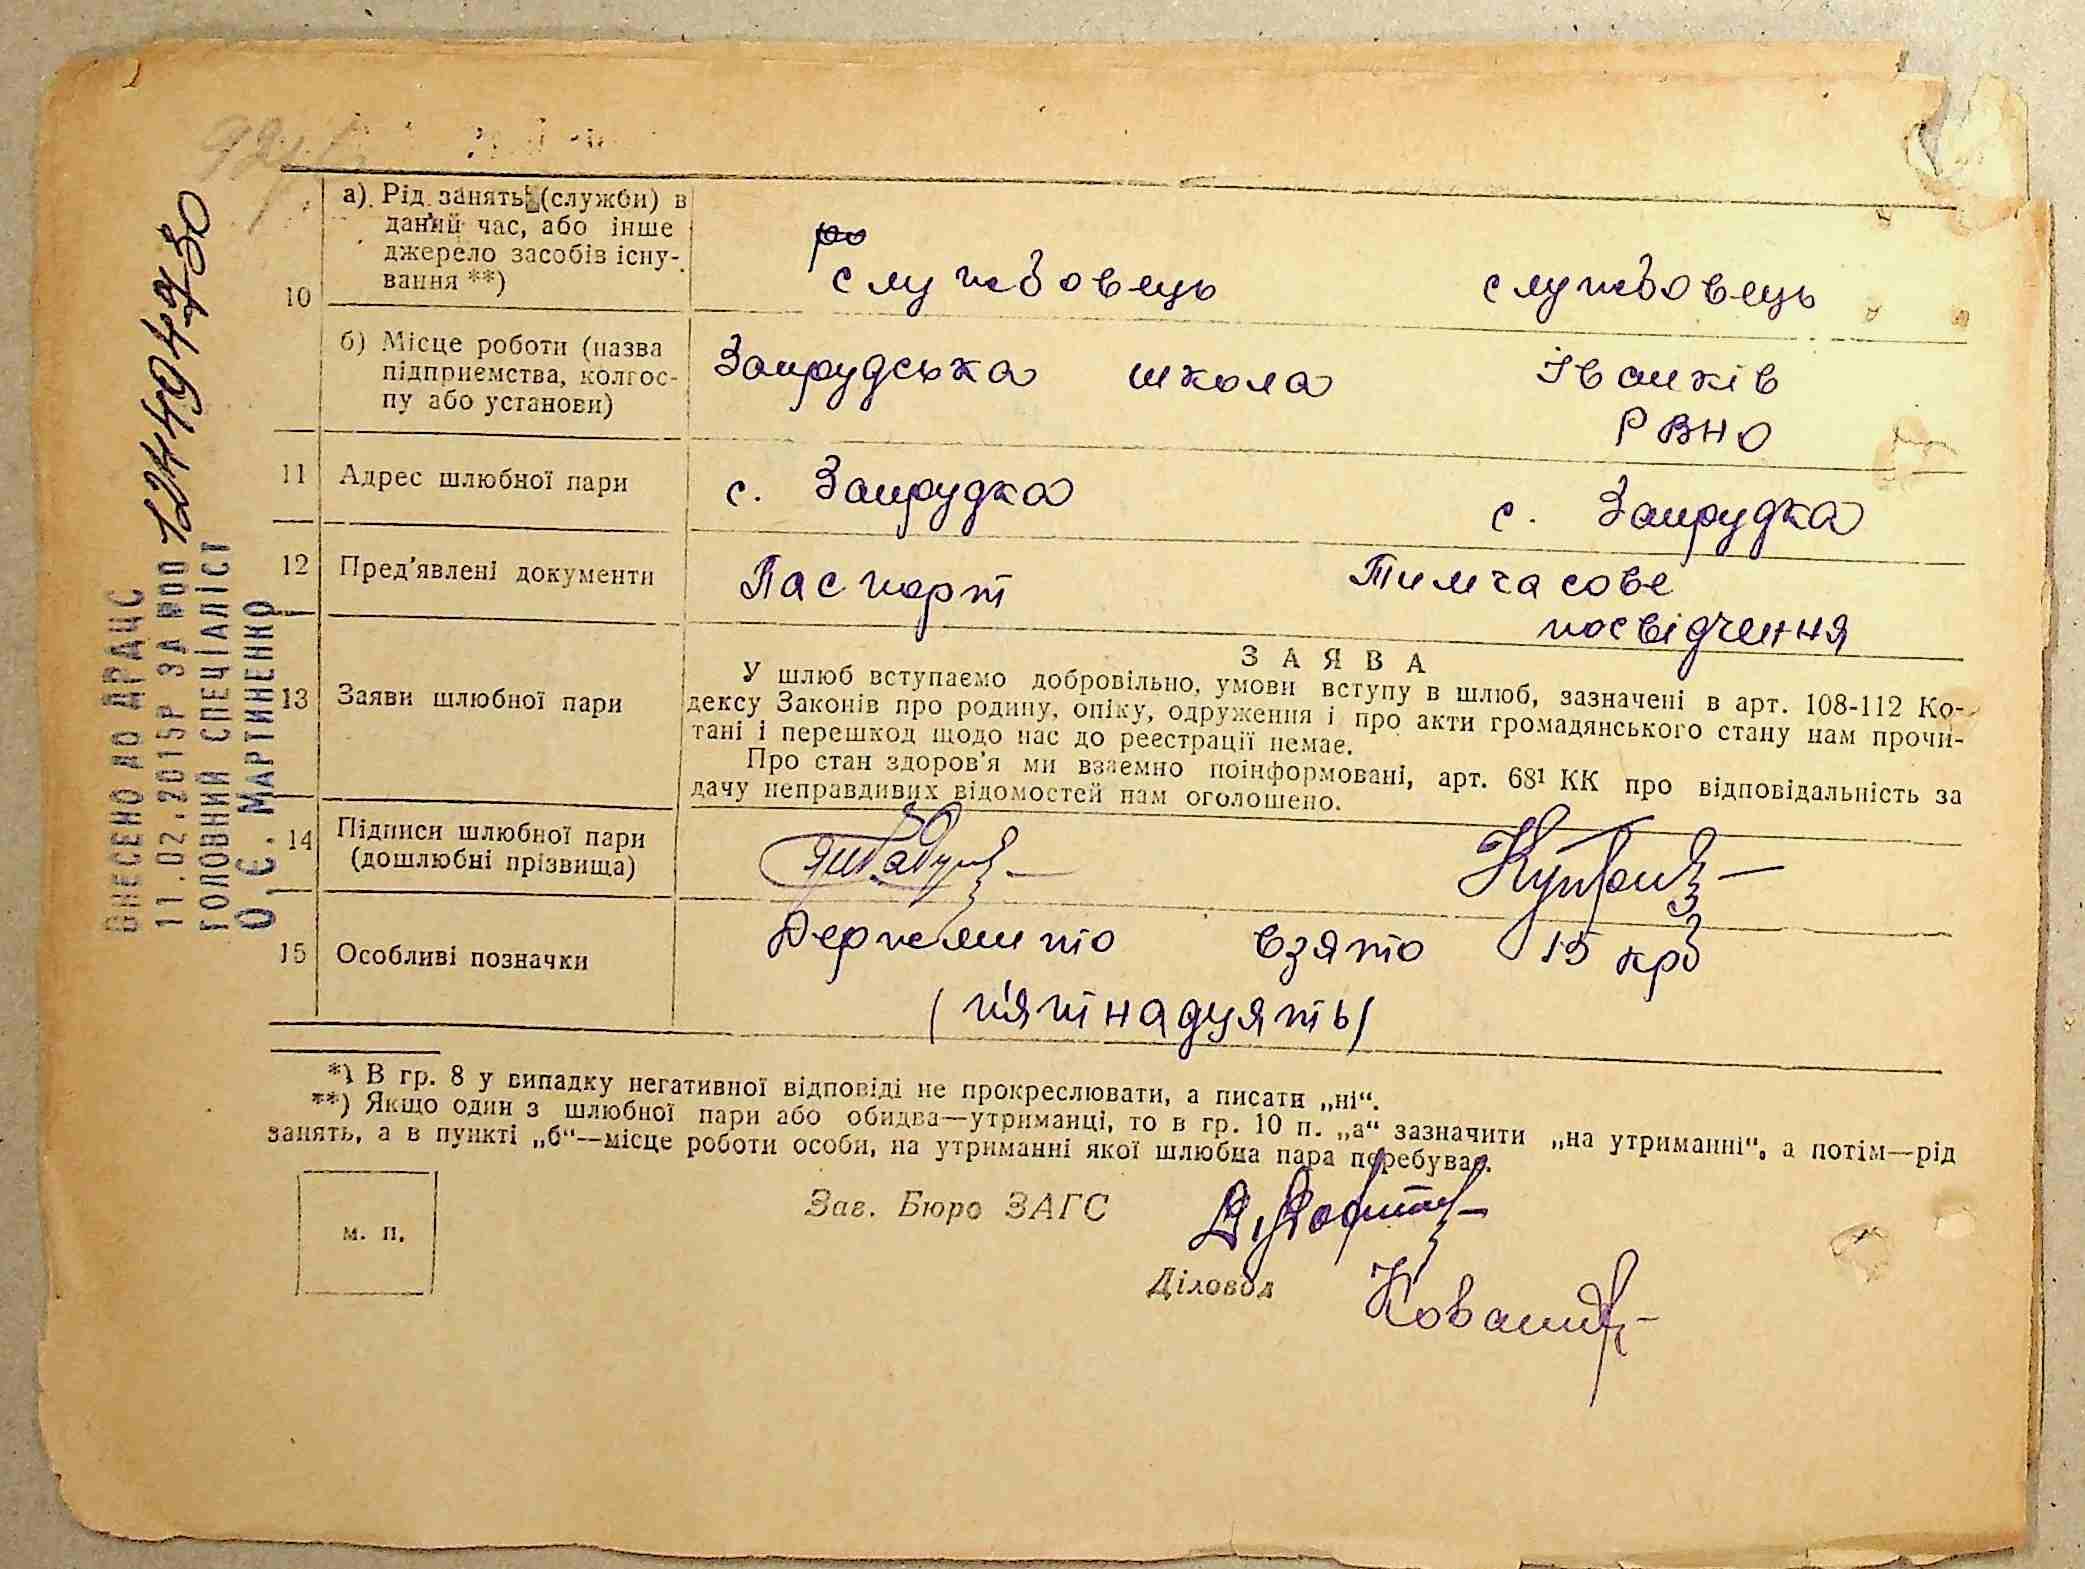 ВНЕСЕНО ДО ДРАЦС
11.02.2015Р ЗА №00 124494930
ГОЛОВНИЙ СПЕЦІАЛІСТ
О.Є. МАРТИНЕНКО
10
а). Рід занять (служби) в
даний час, або інше
джерело засобів існу-
вання **)
службовець службовець
б) Місце роботи (назва
підприємства, колгос-
пу або установи)
Запрудська школа Іванків
РВНО
11 Адрес шлюбної пари с. Запрудка с. Запрудка
12 Пред'явлені документи Паспорт Тимчасове
посвідчення
13 Заяви шлюбної пари
ЗАЯВА
У шлюб вступаємо добровільно, умови вступу в шлюб, зазначені в арт. 108-112 Ко-
дексу Законів про родину, опіку, одруження і про акти громадянського стану нам прочи-
тані і перешкод щодо нас до реєстрації немає.
Про стан здоров'я ми взаємно поінформовані, арт. 68¹ КК про відповідальність за
дачу неправдивих відомостей нам оголошено.
14 Підписи шлюбної пари
(дошлюбні прізвища)
15 Особливі позначки
Держмито взято 15 крб
(п'ятнадцять)
*) В гр. 8 у випадку негативної відповіді не прокреслювати, а писати „ні“.
**) Якщо один з шлюбної пари або обидва—утриманці, то в гр. 10 п. „а“ зазначити „на утриманні“, а потім—рід
занять, а в пункті „б“—місце роботи особи, на утриманні якої шлюбна пара перебуває.
м. п.
Зав. Бюро ЗАГС
Діловод